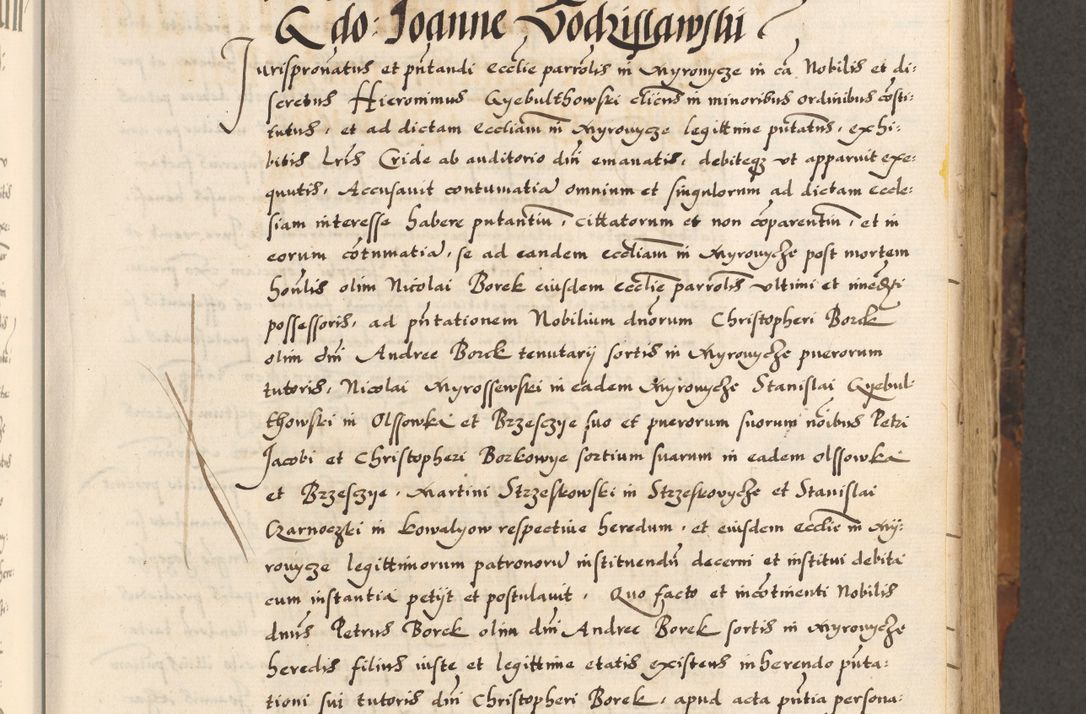 Q do: Joanne Godzisslawski
Jurispronatus et pntandi ecclie parrolis in Myronycze in ca Nobilis et di:
scretus Hieronimus Gyebulthowski cliens in minoribus ordinibus costi:
tutus, et ad dictam eccliam in Myrovycze legittime putatus, exhi:
bitis lris Cride ab auditorio dni emanatis, debiteqz vt apparuit exe:
quutis, Accusauit contumatia omnium et singulorum ad dictam eccle:
siam interesse habere putantiu, cittatorum et non coparentiu, et in
eorum cotumatia, se ad eandem eccliam in Myrovycze post mortem
honlis olim Nicolai Borek eiusdem ecclie parrolis vltimi et imedti
possessoris, ad pntationem Nobilium dnorum Christopheri Borek
olim dni Andree Borek tenutarij sortis in Myrovycze puerorum
tutoris, Nicolai Myrossewski in eadem Myrovycze Stanislai Gyebul-
thowski in Olssowka et Brzesczye suo et puerorum suorum noibus Petri
Jacobi et Christopheri Borkowye sortium suarum in eadem Olssowka
et Brzesczye, Martini Strzeskowski in Strzeskovycze et Stanislai
Czarnoczki in Kowalyow respectiue heredum, et eiusdem ecclie in My:
rovycze legittimorum patronoru instituendu decerni et institui debita
cum instantia petijt et postulauit, Quo facto et incotinenti Nobilis
dnus Petrus Borek olim dni Andree Borek sortis in Myrovycze
heredis filius iuste et legittime etatis existens inherendo pnta:
tioni sui tutoris dni Christopheri Borek, apud acta pntia persona: